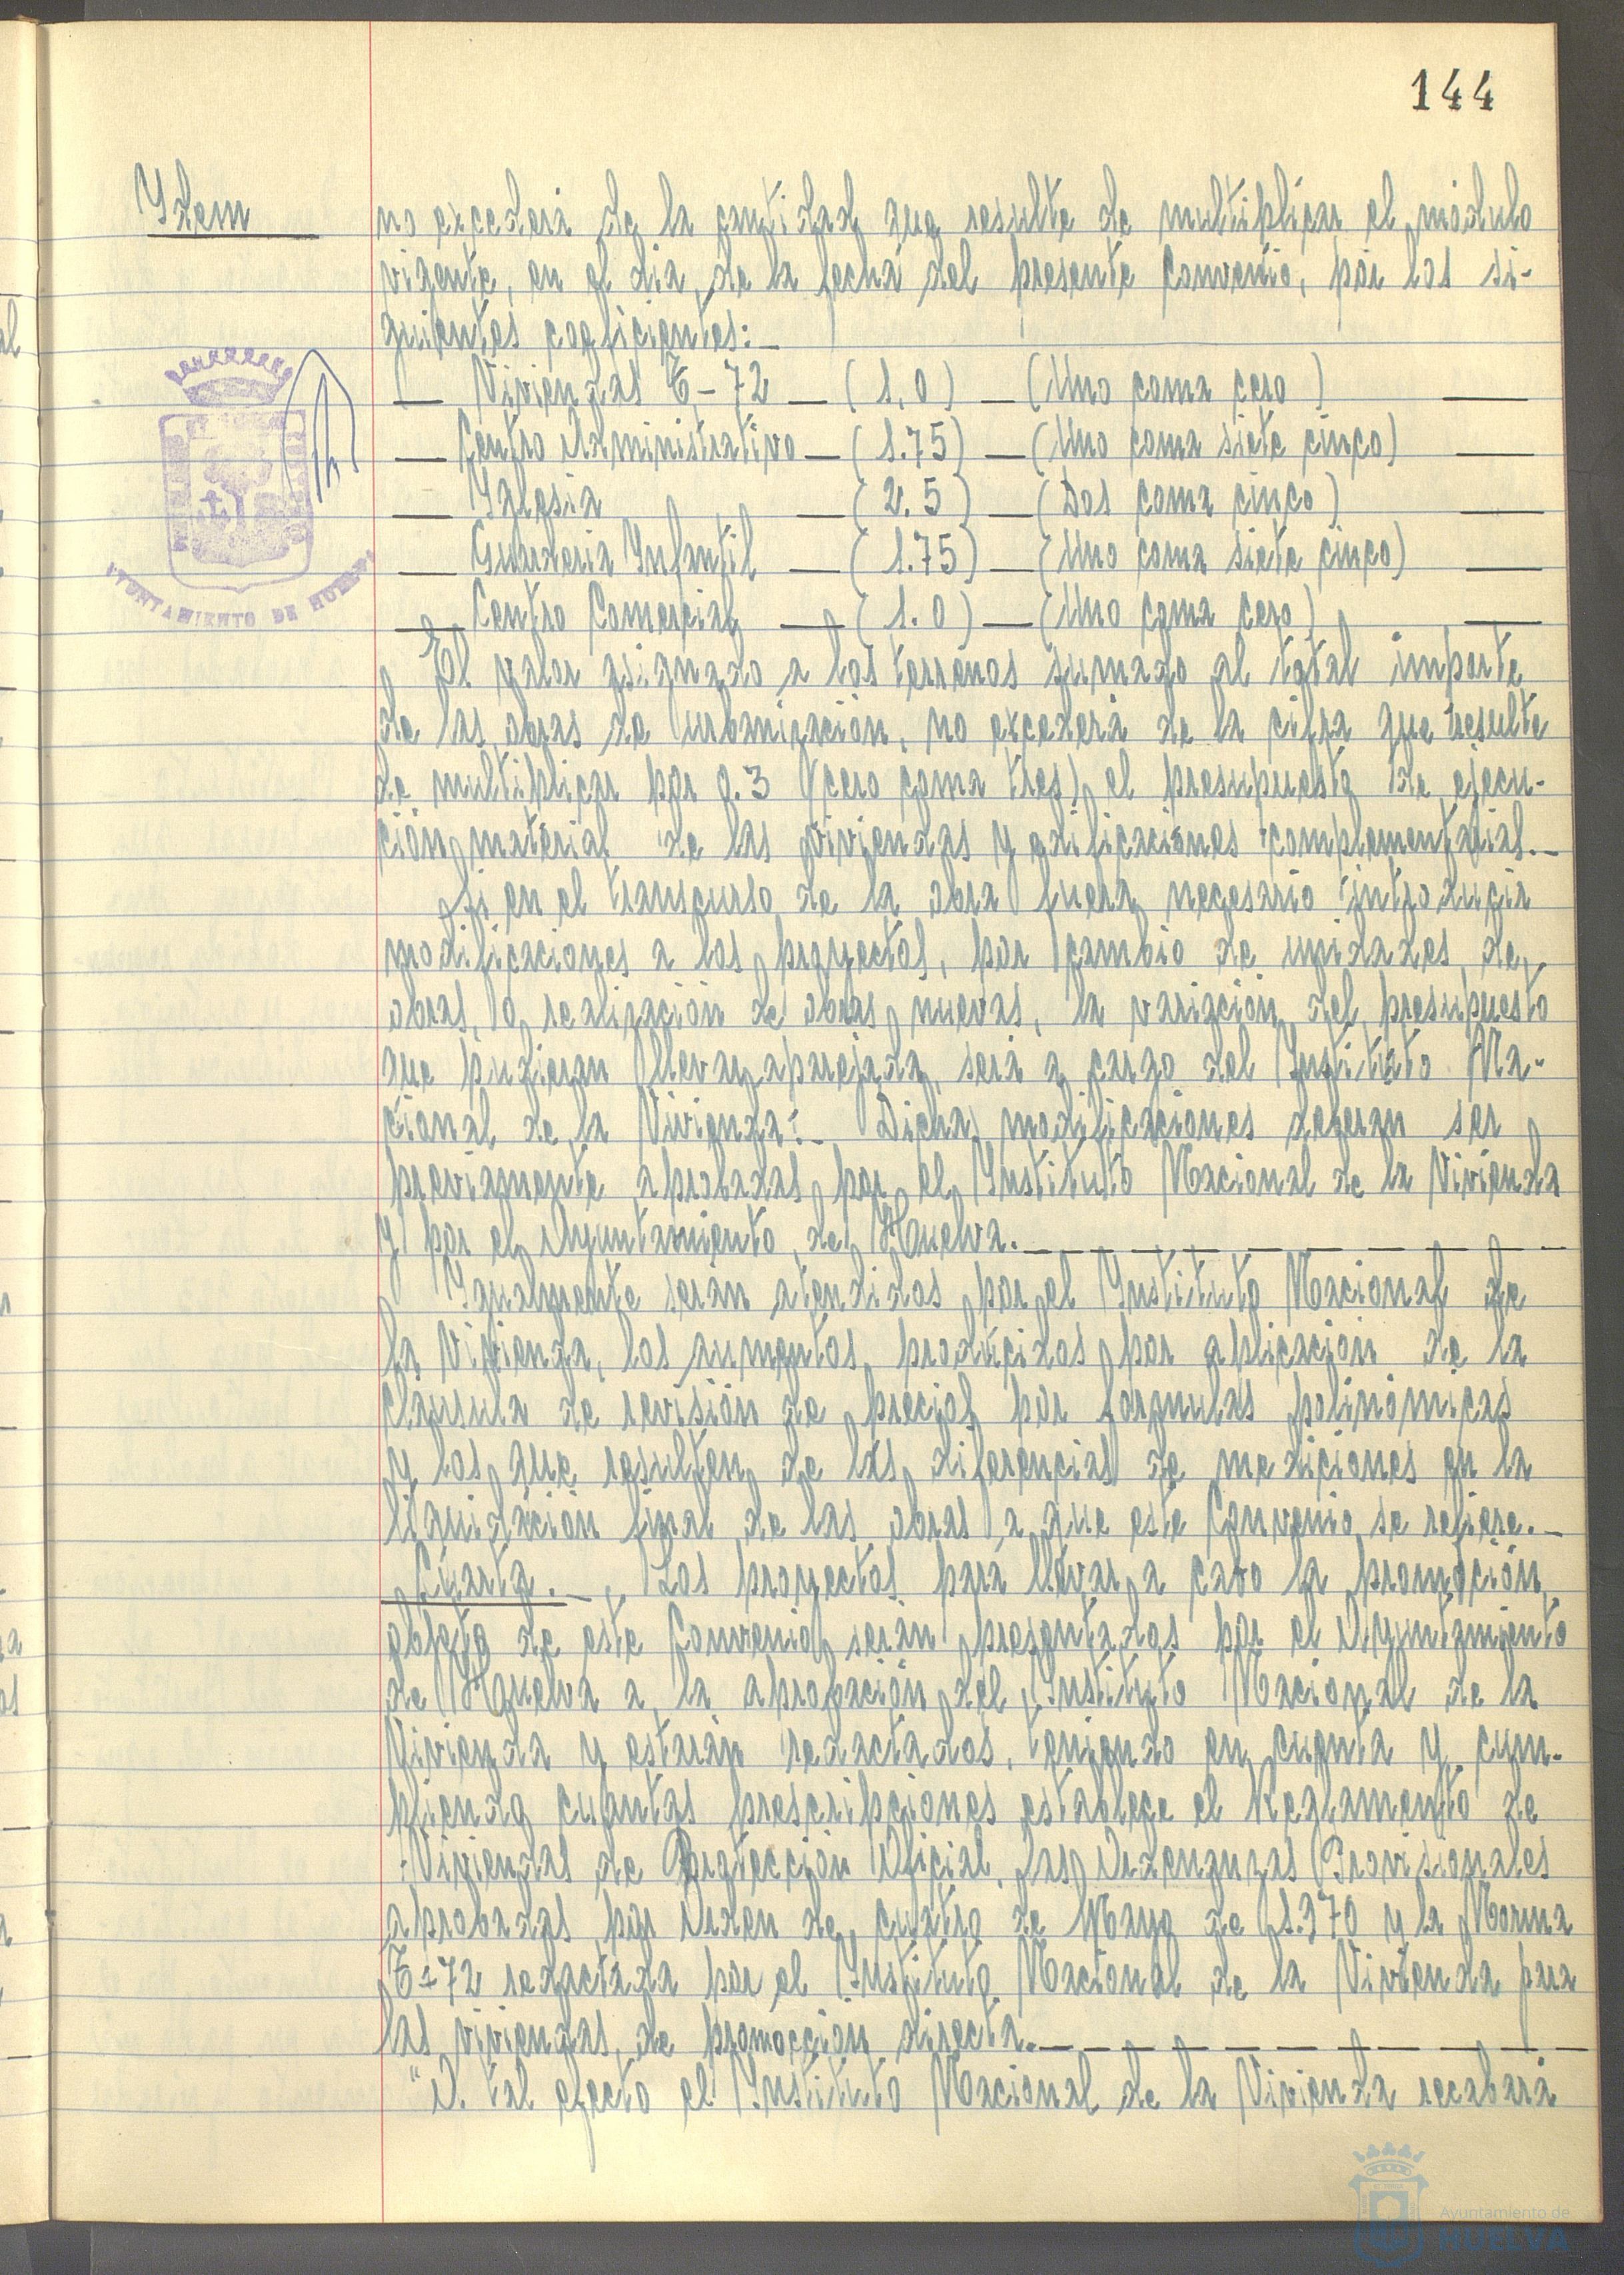 144
Ydem
no excederá de la cantidad que resulte de multiplicar el módulo
vigente, en el dia, de la fecha del presente Convenio, por los si-
guientes coeficientes:_
— Viviendas T-72 — (1,0) — (Uno coma cero) —
— Centro Administrativo — (1.75) — (Uno coma siete cinco) —
— Yglesia — (2.5) — (Dos coma cinco) —
— Guarderia Ynfantil — (1.75) — (Uno coma siete cinco) —
— Centro Comercial — (1.0) — (Uno coma cero) —
AYUNTAMIENTO DE HUELVA
El valor asignado a los terrenos sumado al total importe
de las obras de urbanización, no excederá de la cifra que resulte
de multiplicar por 0.3 (cero coma tres) el presupuesto de ejecu-
ción material de las viviendas y edificaciones complementarias._
Si en el transcurso de la obra fuera necesario introducir
modificaciones a los proyectos, por cambio de unidades de
obras, o realización de obras nuevas, la variación del presupuesto
que pudieran llevar aparejada, será a cargo del Ynstituto Na-
cional de la Vivienda._ Dichas modificaciones deberan ser
previamente aprobadas por el Ynstituto Nacional de la Vivienda
y por el Ayuntamiento de Huelva. _ _ _ _ _ _ _ _ _
Ygualmente serán atendidos por el Ynstituto Nacional de
la Vivienda, los aumentos producidos por aplicación de la
clausula de revisión de precios por formulas polinómicas
y los que resulten de las diferencias de mediciones en la
liquidación final de las obras a que este Convenio se refiere._
Cuarta._ Los proyectos para llevar a cabo la promoción
objeto de este Convenio serán presentados por el Ayuntamiento
de Huelva a la aprobación del Ynstituto Nacional de la
Vivienda y estarán redactados, teniendo en cuenta y cum-
pliendo cuantas prescripciones establece el Reglamento de
Viviendas de Protección Oficial, las Ordenanzas Provisionales
aprobadas por Orden de cuatro de Mayo de 1.970 y la Norma
T-72 redactada por el Ynstituto Nacional de la Vivienda para
las viviendas de promoccion directa. _ _ _ _ _ _ _ _ _
"A tal efecto el Ynstituto Nacional de la Vivienda recabará
Ayuntamiento de
HUELVA